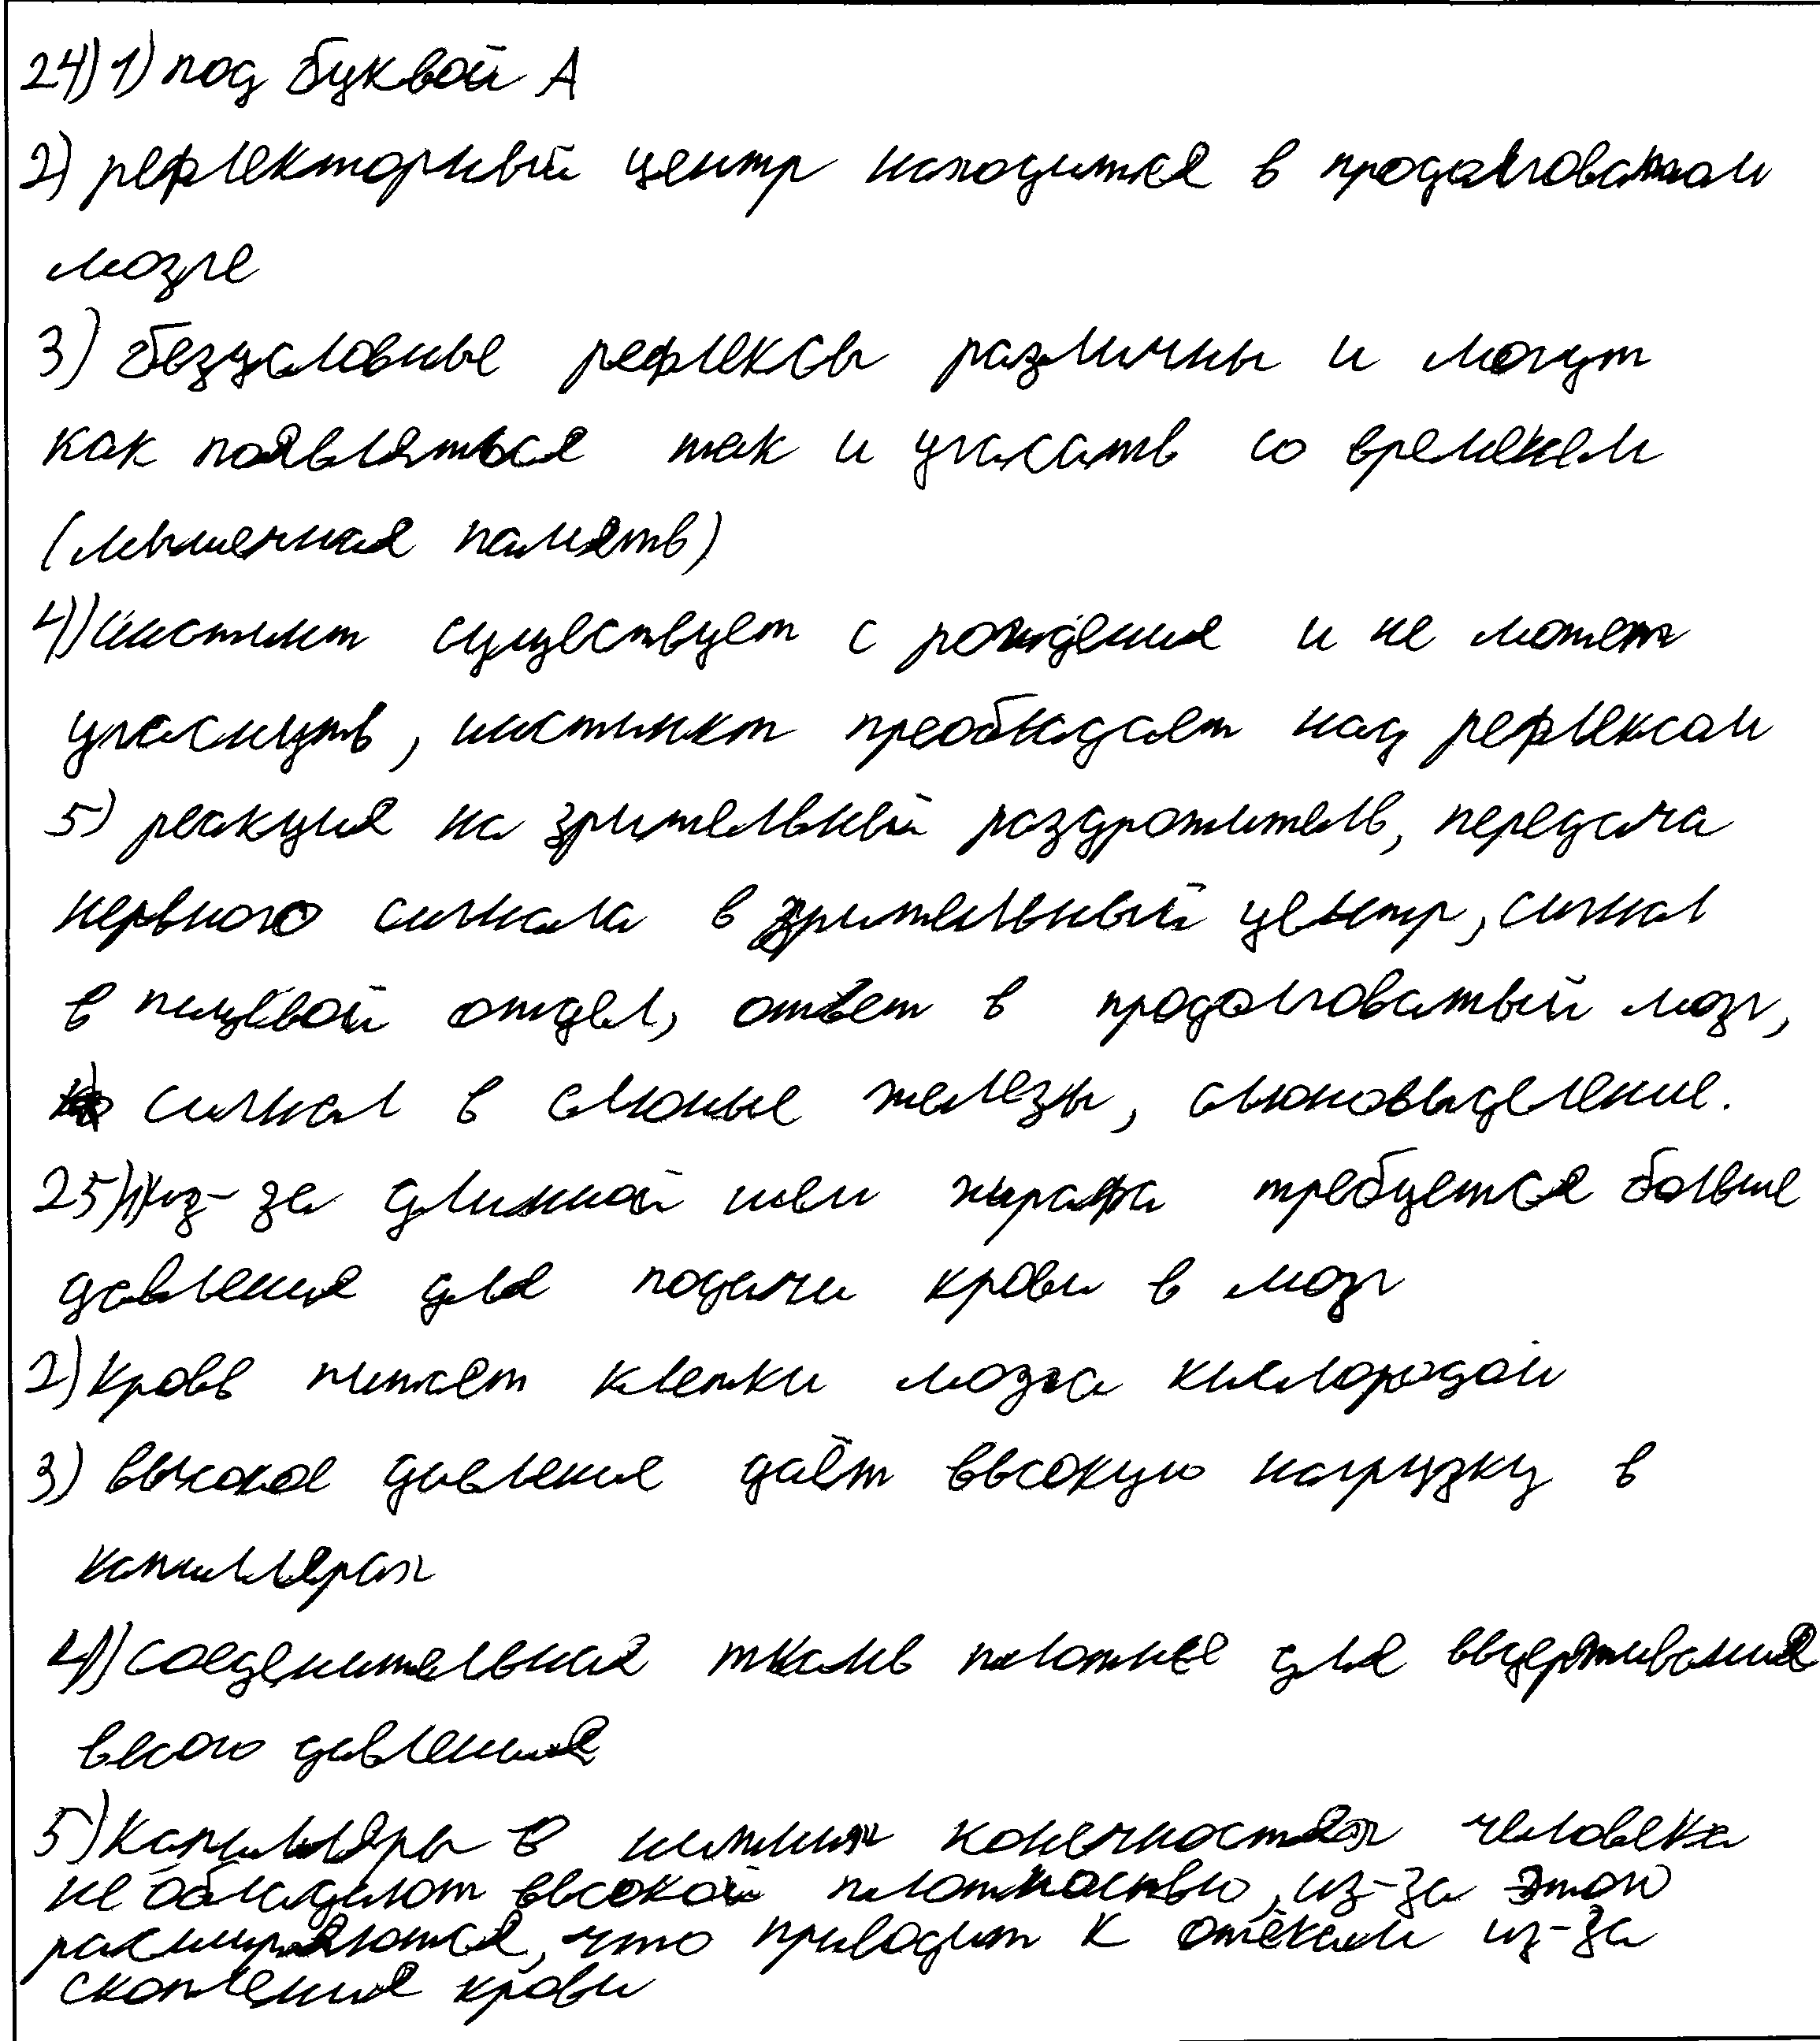 24) 1) под буквой А
2) рефлекторный центр находится в продолговатом
мозге
3) безусловные рефлексы различны и могут
как появляться так и угасать со временем
(мышечная память)
4) инстинкт существует с рождения и не может
угаснуть, инстинкт преобладает над рефлексом
5) реакция на зрительный раздражитель, передача
нервного сигнала в зрительный центр, сигнал
в пищевой отдел, ответ в продолговатый мозг,
сигнал в слюные железы, слюновыделение.
25) 1) Из-за длинной шеи жирафа требуется больше
давления для подачи крови в мозг
2) Кровь питает клетки мозга кислородом
3) высокое давление даёт высокую нагрузку в
капиллярах
4) Соединительная ткань плотнее для выдерживания
давления
5) Капилляры в нижних конечностях человека
не обладают высокой плотностью, из-за этого
расширяются, что приводит к отёкам из-за
скопления крови